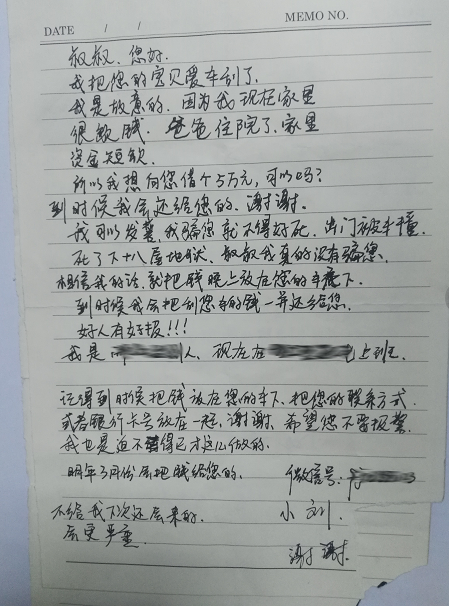 DATE / / MEMO NO.
叔叔，您好．
我把您的宝贝爱车刮了．
我是故意的．因为我现在家里
很缺钱．爸爸住院了．家里
资金短缺．
所以我想向您借个5万元，可以吗？
到时候我会还给您的．谢谢．
我可以发誓，我骗您就不得好死．出门被车撞．
死了下十八层地狱．叔叔我真的没有骗您．
相信我的话．就把钱晚上放在您的车底下．
到时候我会把刮您车的钱一并还给您．
好人有好报！！！
我是 人、现在在 上班．
记得到时候把钱放在您的车下、把您的联系方式
或者银行卡号放在一起，谢谢．希望您不要报警．
我也是迫不得已才这么做的．
明年3月份会把钱给您的． 微信号：
不给我下次还会来的． 小刘．
会更严重． 谢谢．